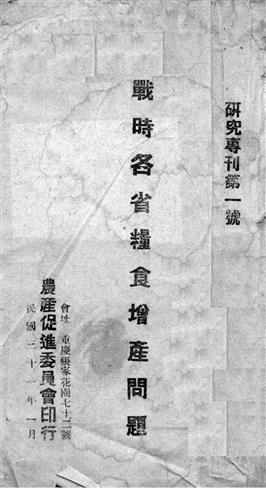 研究專刊第一號
戰時各省糧食增產問題
會址 重慶張家花園七十二號
農產促進委員會印行
民國三十一年一月